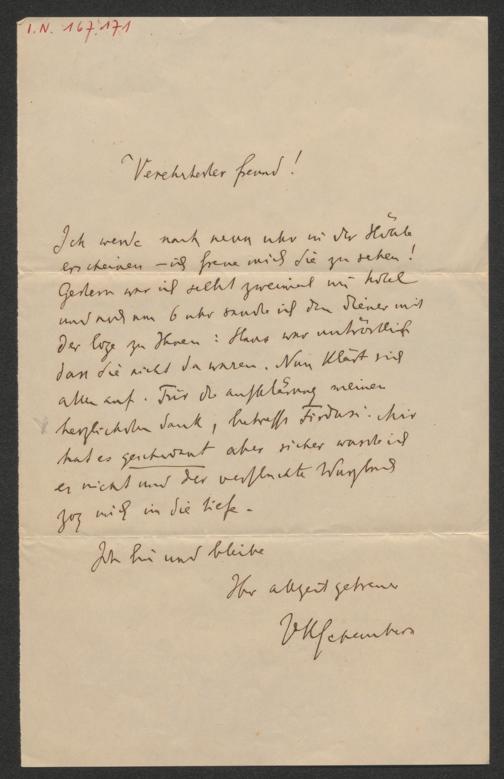 I.N. 167.171
Verehrtester Freund!
Ich werde nach neun Uhr in der Höhle
erscheinen – ich freue mich Sie zu sehen!
Gestern war ich selbst zweimal im Hotel
und noch um 6 Uhr sandte ich den Diener mit
der Loge zu Ihnen: Hans war untröstlich
dass Sie nicht da waren. Nun klärt sich
alles auf. Für die Aufklärung meinen
herzlichsten Dank, betreffs Firdusi. Mir
hat es geschwant aber sicher wusste ich
es nicht und der verfluchte Wurzbach
zog mich in die Tiefe.
Ich bin und bleibe
Ihr allzeit getreuer